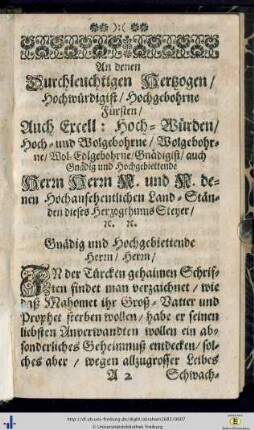 ):(
An denen
Durchleuchtigen Hertzogen/
Hochwürdigist/ Hochgebohrne
Fürsten/
Auch Excell: Hoch-Würden/
Hoch- und Wolgebohrne/ Wolgebohr-
ne/ Wol-Edlgebohrne/ Gnädigist/ auch
Gnädig und Hochgebiettende
Herrn Herrn N. und N. de-
nen Hochansehentlichen Land-Stän-
den dieses Herzogthums Steyer/
N. N.
Gnädig und Hochgebiettende
Herrn/ Herrn/
IN der Türcken gehaimen Schrif-
ten findet man verzaichnet/ wie
daß Mahomet ihr Groß-Vatter und
Prophet sterben wollen/ habe er seinen
liebsten Anverwandten wollen ein ab-
sonderliches Geheimnuß entdecken/ sol-
ches aber/ wegen allzugrosser Leibes
A 2 Schwach-
http://dl.ub.uni-freiburg.de/diglit/abraham1682/0007
© Universitätsbibliothek Freiburg